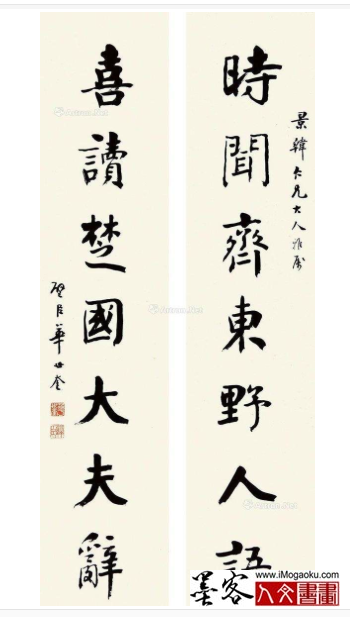 景韓仁兄大人雅屬
時聞齊東野人語
喜讀楚國大夫辭
璧臣華世奎
www.iMogaoku.com
墨客
人文書畫